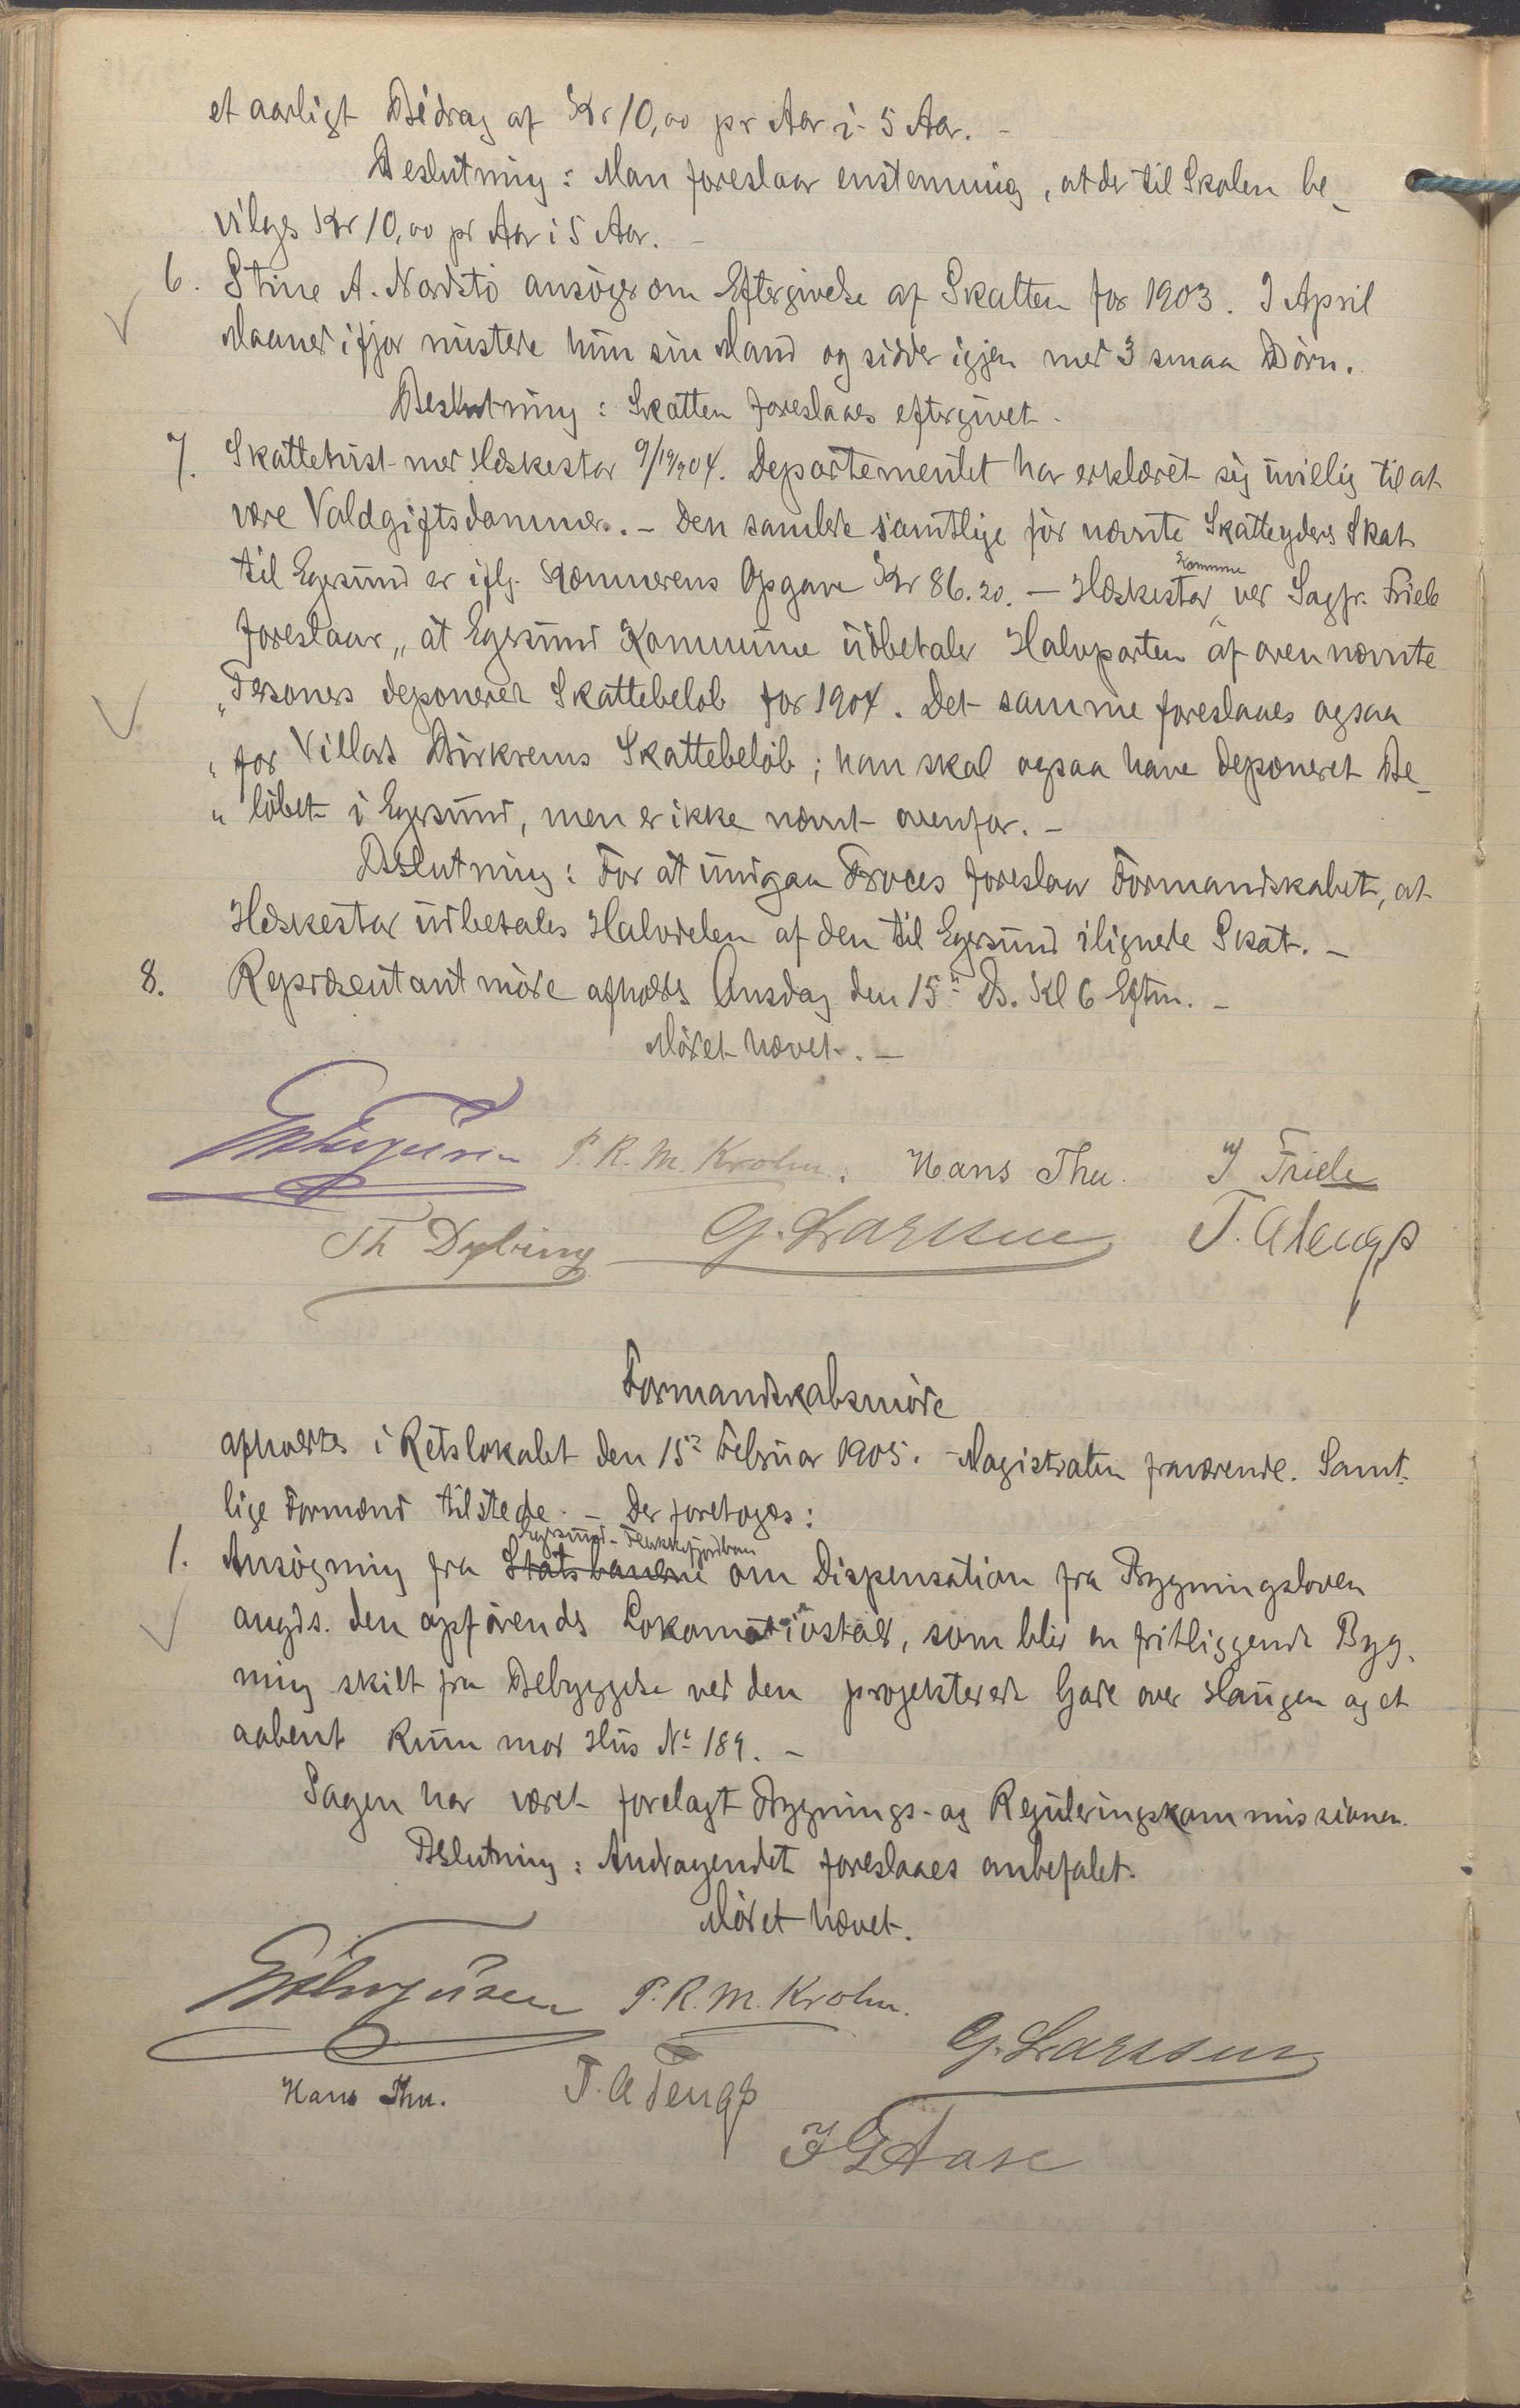 et aarligt Bidrag af Kr 10,00 pr Aar i 5 Aar. –
Beslutning: Man foreslaar enstemmig, at der til Skolen be-
vilges Kr 10,00 pr Aar i 5 Aar. –
6. Stine A. Nordstö ansöger om Eftergivelse af Skatten for 1903. I April
Maaned ifjor mistede hun sin Mand og sidder igjen med 3 smaa Börn.
Beslutning: Skatten foreslaaes eftergivet.
7. Skattetvist med Heskestad 9/19/904. Departementet har erklæret sig uvillig til at
være Voldgiftsdommer. – Den samlede samtlige för nævnte Skatteyders Skat
til Egersund er iflg. Kæmnerens Opgave Kr 86.20. – Heskestad Kommune ved Sagfr. Friele
foreslaar „at Egersund Kommune udbetaler Halvparten af ovennævnte
„Personers deponeret Skattebelöb for 1904. Det samme foreslaaes ogsaa
„for Villads Birkrems Skattebelöb; han skal ogsaa have deponeret Be-
„löbet i Egersund, men er ikke nævnt ovenfor. –
Beslutning: For at undgaa Proces foreslaar Formandskabet, at
Heskestad udbetales Halvdelen af den til Egersund ilignede Skat. –
8. Repræsentantmöde afholdes Onsdag den 15de Ds. Kl 6 Eftm. –
Mödet hævet. –
P. R. M. Krohn. Hans Thu. J Friele
Th Dybing G. Larssen T. A Tengs
Formandskabsmöde
afholdtes i Retslokalet den 15de Februar 1905. Magistraten fraværende. Samt-
lige Formænd tilstede. – Der foretoges:
Egersund-Flekkefjordban
1. Ansögning fra Statsbanerne om Dispensation fra Bygningsloven
angds. den opförendes Lokomotivstald, som blir en fritliggende Byg-
ning skilt fra Bebyggelse ved den projekterede Gade over Haugen og et
aabent Rum mod Hus No 189. –
Sagen har været forelagt Bygnings- og Reguleringskommissionen.
Beslutning: Andragendet foreslaaes anbefalet.
Mödet hævet.
P. R. M. Krohn.
G. Larssen
Hans Thu. T. A Tengs
J G Aase